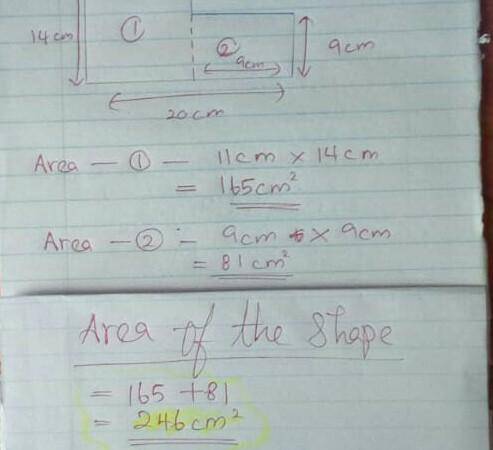 14cm ① ② 9cm 9cm
20cm
Area — ① — 11cm × 14cm
= 165cm²
Area — ② — 9cm × 9cm
= 81cm²
Area of the shape
= 165 + 81
= 246cm²